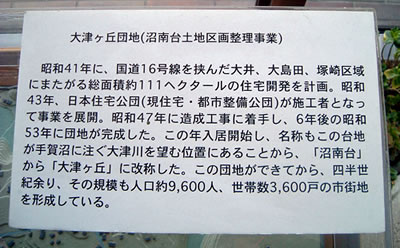 大津ヶ丘団地(沼南台土地区画整理事業)
昭和41年に、国道16号線を挟んだ大井、大島田、塚崎区域
にまたがる総面積約111ヘクタールの住宅開発を計画。昭和
43年、日本住宅公団(現住宅・都市整備公団)が施工者となっ
て事業を展開。昭和47年に造成工事に着手し、6年後の昭和
53年に団地が完成した。この年入居開始し、名称もこの台地
が手賀沼に注ぐ大津川を望む位置にあることから、「沼南台」
から「大津ヶ丘」に改称した。この団地ができてから、四半世
紀余り、その規模も人口約9,600人、世帯数3,600戸の市街地
を形成している。